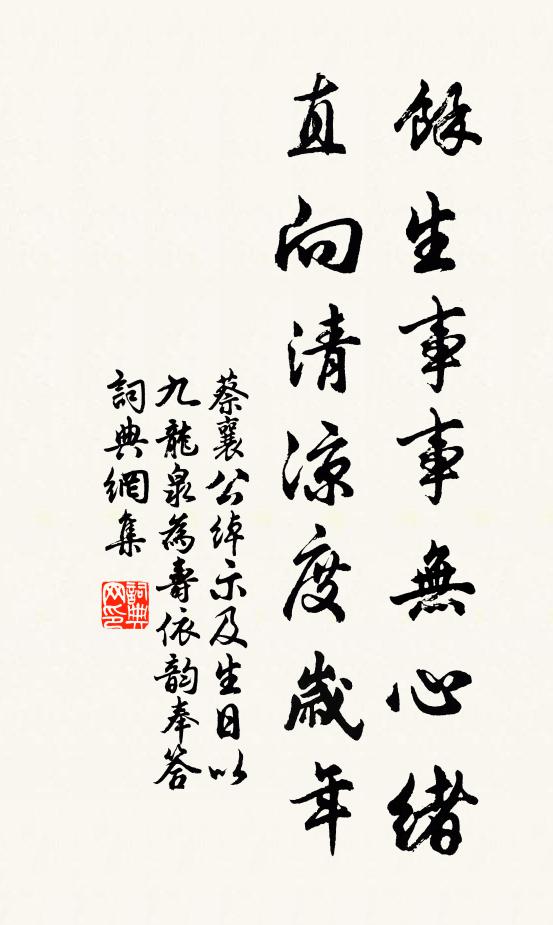 餘生事事無心緒
直向清凉度歲年
蔡襄公綽示及生日以
九龍泉為壽依韵奉答
詞典網集
詞典
网印